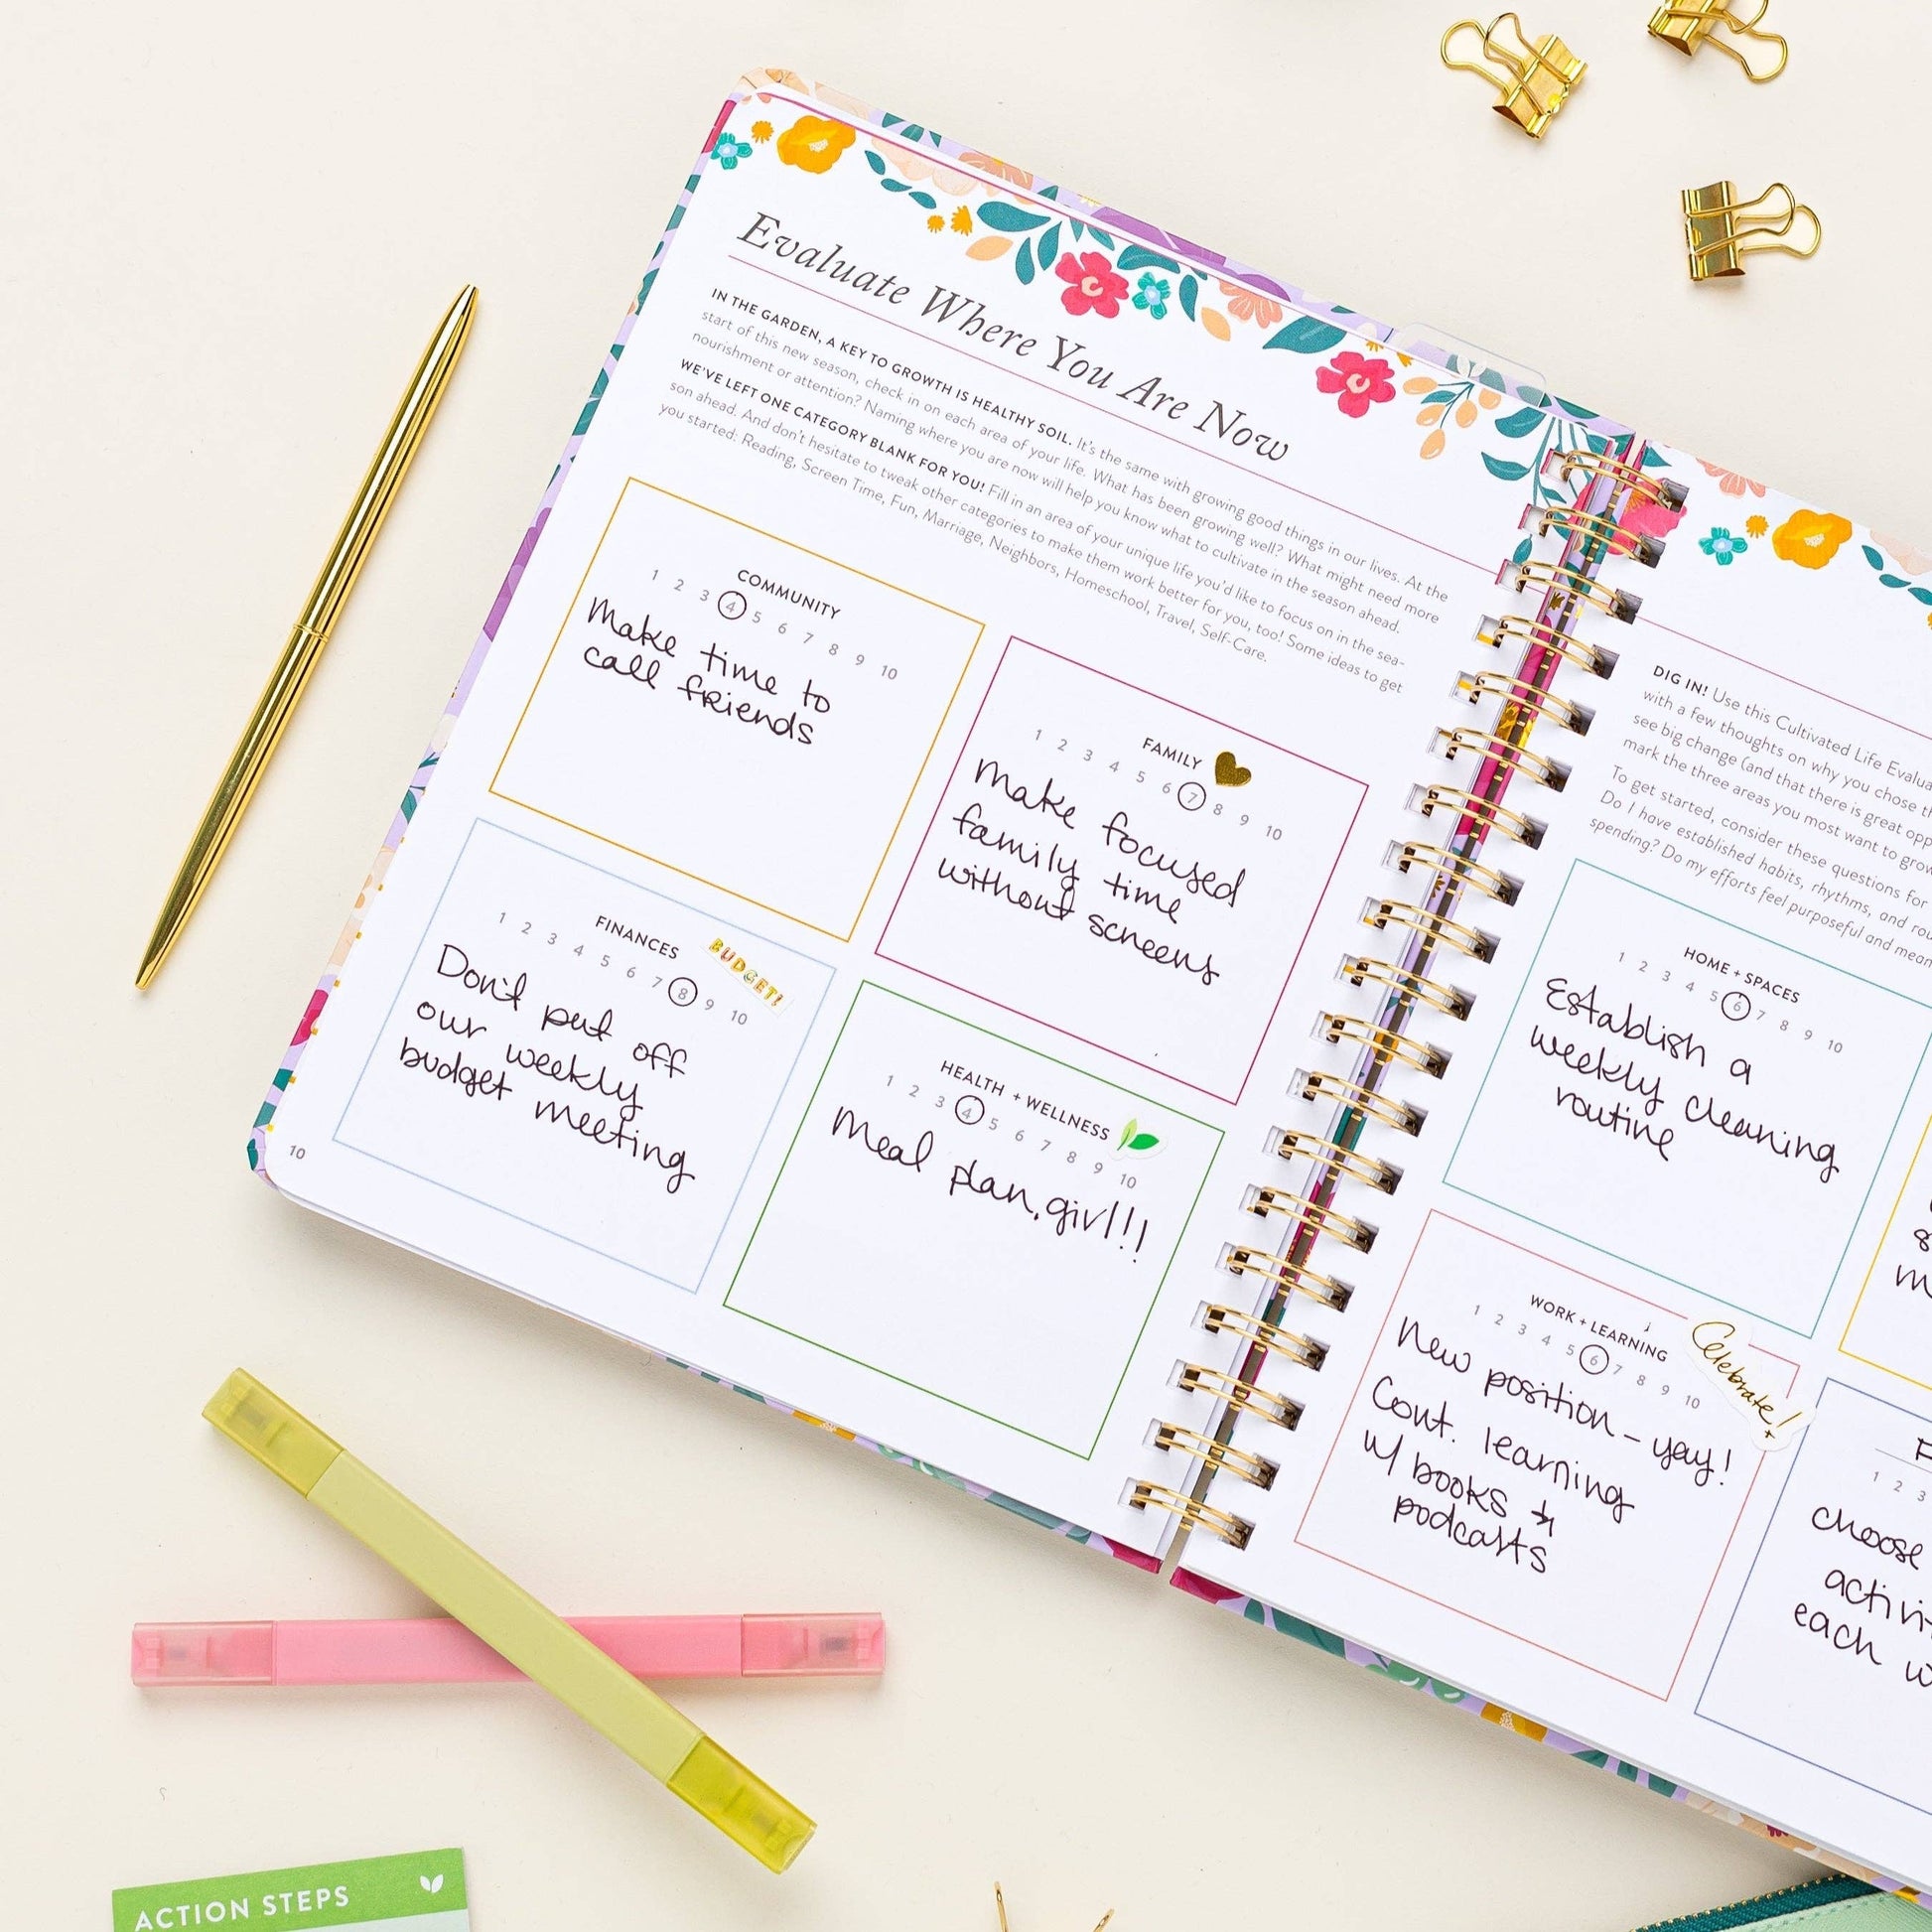 Evaluate Where You Are Now
IN THE GARDEN, A KEY TO GROWTH IS HEALTHY SOIL. It's the same with growing good things in our lives. At the
start of this new season, check in on each area of your life. What has been growing well? What might need more
nourishment or attention? Naming where you are now will help you know what to cultivate in the season ahead.
WE'VE LEFT ONE CATEGORY BLANK FOR YOU! Fill in an area of your unique life you'd like to focus on in the sea-
son ahead. And don't hesitate to tweak other categories to make them work better for you, too! Some ideas to get
you started: Reading, Screen Time, Fun, Marriage, Neighbors, Homeschool, Travel, Self-Care.
COMMUNITY
1 2 3 4 5 6 7 8 9 10
Make time to
call friends
FAMILY
1 2 3 4 5 6 7 8 9 10
Make focused
family time
without screens
FINANCES
BUDGET!
1 2 3 4 5 6 7 8 9 10
Don't put off
our weekly
budget meeting
HEALTH + WELLNESS
1 2 3 4 5 6 7 8 9 10
Meal plan, girl!!!
10
DIG IN! Use this Cultivated Life Evalua
with a few thoughts on why you chose th
see big change (and that there is great opp
mark the three areas you most want to grow
To get started, consider these questions for
Do I have established habits, rhythms, and rou
spending? Do my efforts feel purposeful and mean
HOME + SPACES
1 2 3 4 5 6 7 8 9 10
Establish a
weekly cleaning
routine
WORK + LEARNING
Celebrate!
1 2 3 4 5 6 7 8 9 10
New position - yay!
Cont. learning
w/ books +
podcasts
1 2 3
choose
activit
each w
ACTION STEPS